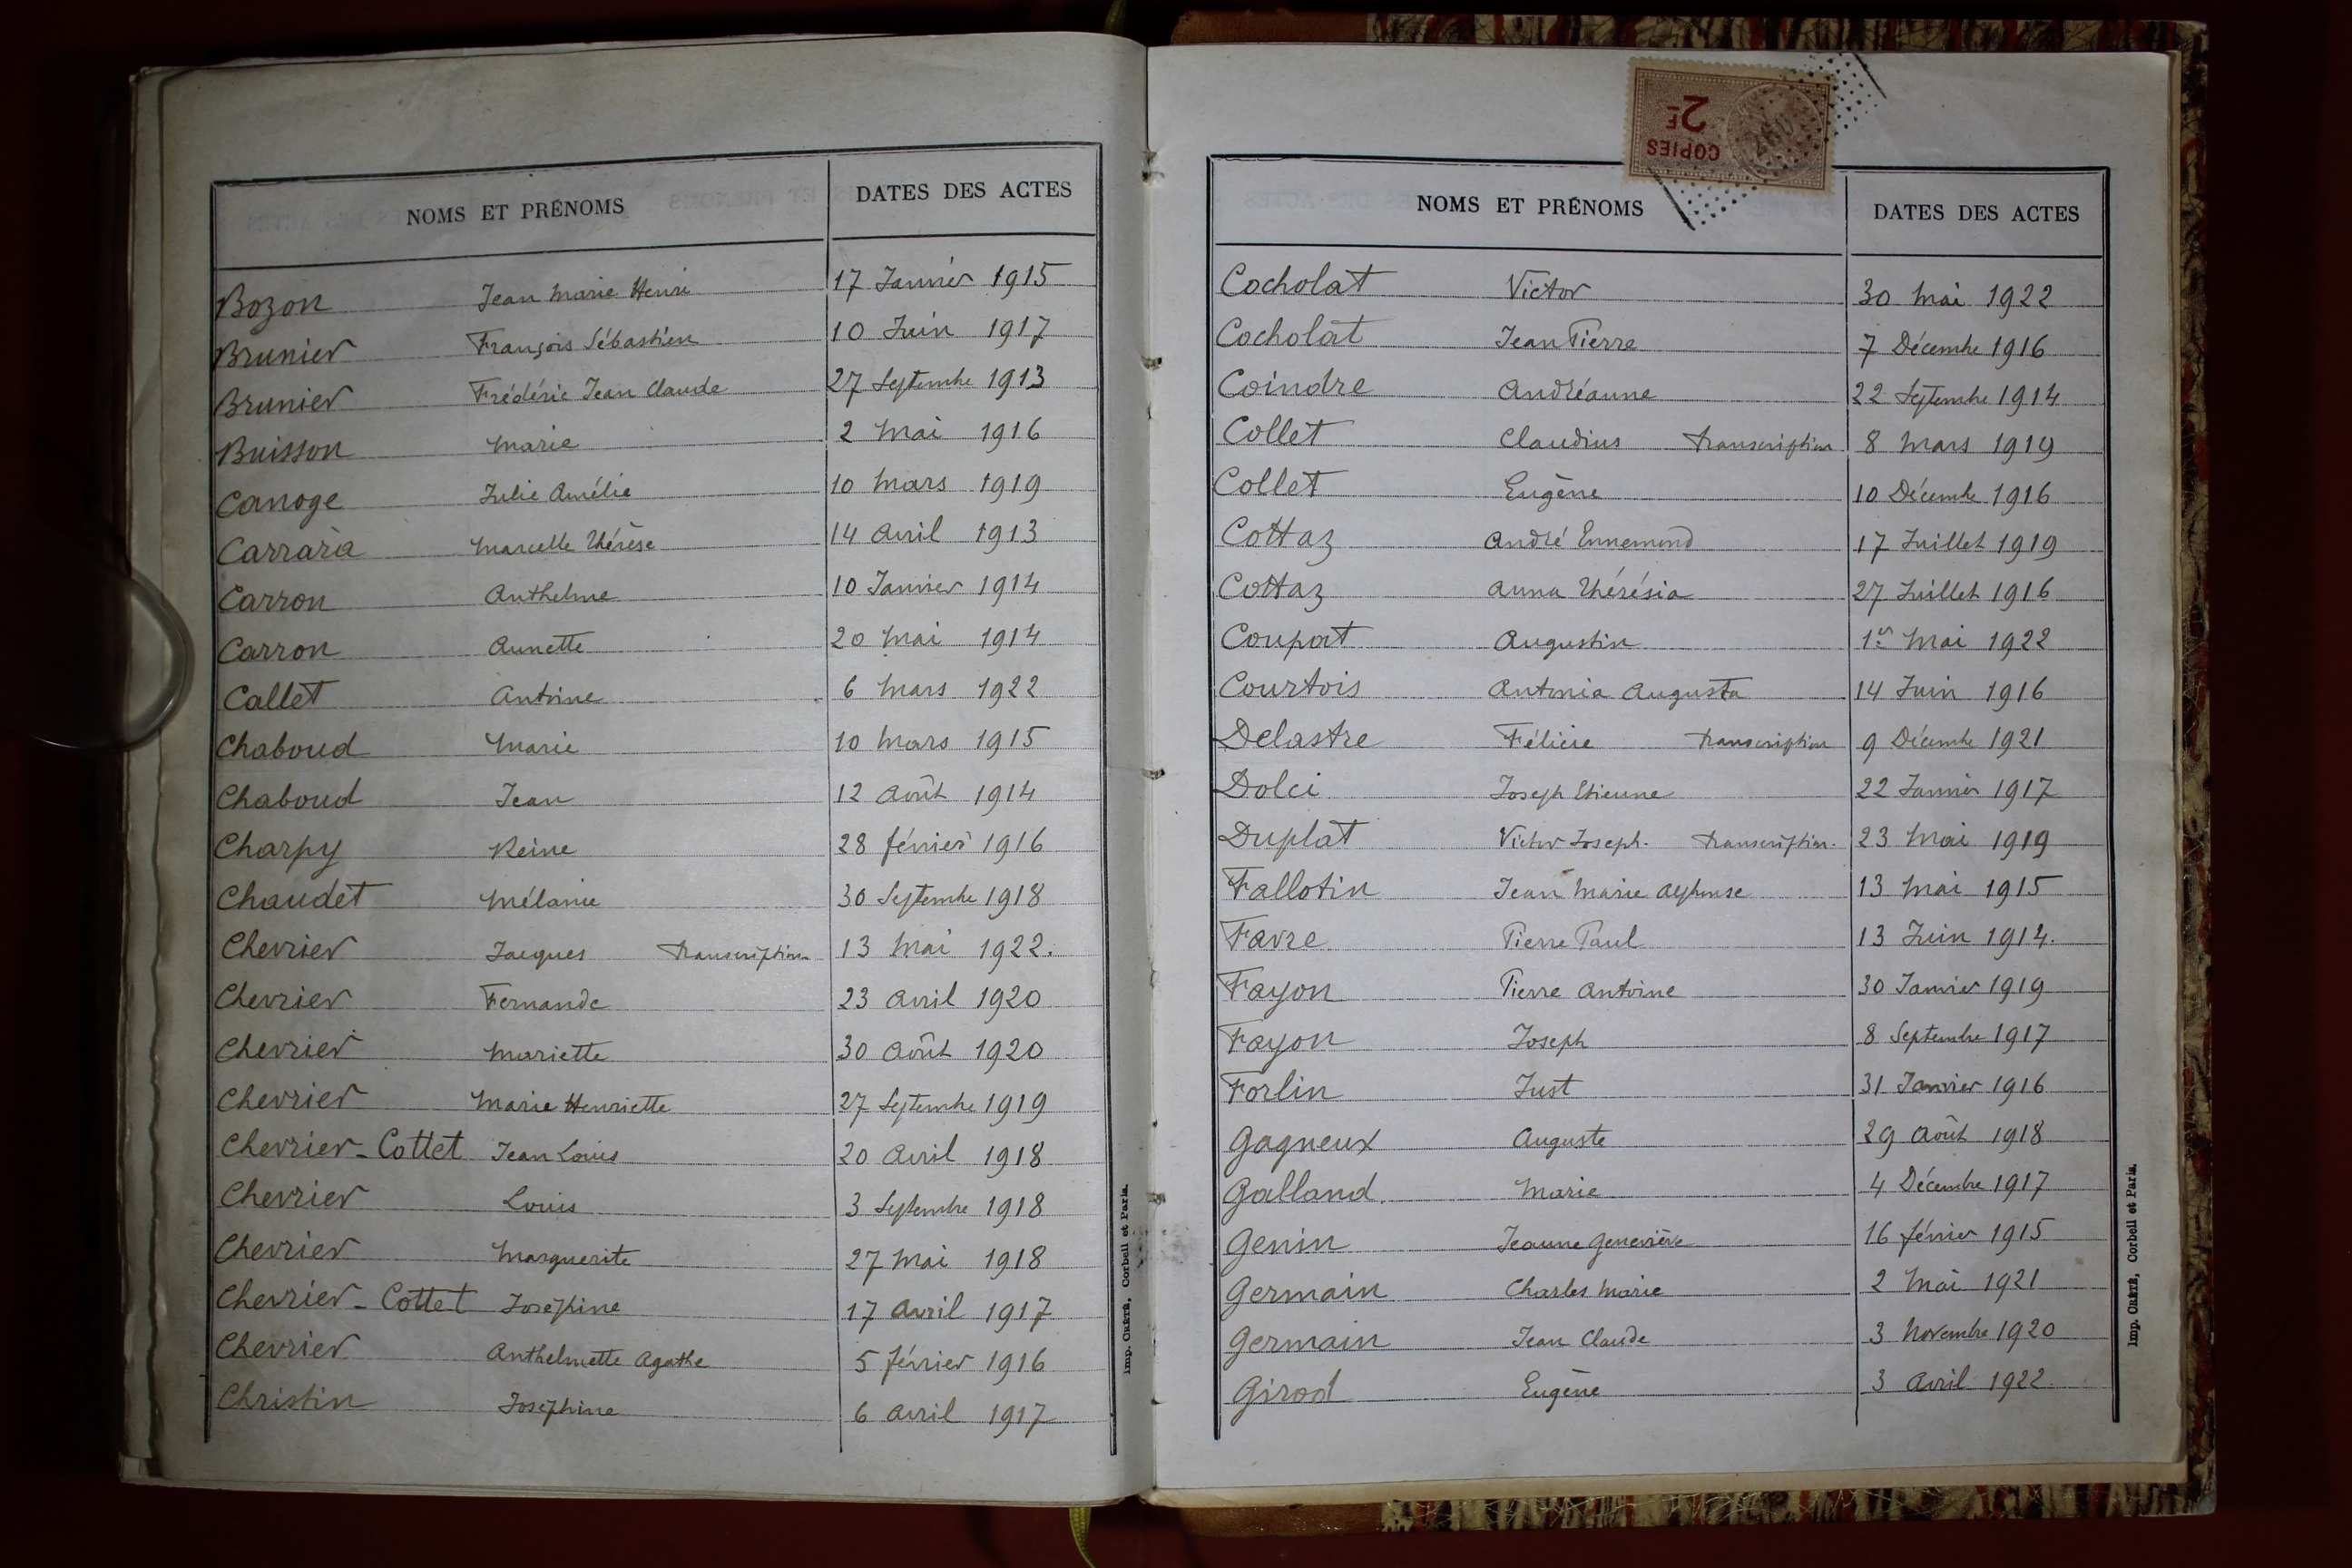 NOMS ET PRÉNOMS DATES DES ACTES
Bozon Jean Marie Henri 17 Janvier 1915
Brunier François Sébastien 10 Juin 1917
Brunier Frédéric Jean Claude 27 Septembre 1913
Buisson Marie 2 Mai 1916
Canoge Julie Amélie 10 Mars 1919
Carrara Marcelle Thérèse 14 Avril 1913
Carron Anthelme 10 Janvier 1914
Carron Annette 20 Mai 1914
Callet Antoine 6 Mars 1922
Chaboud Marie 10 Mars 1915
Chaboud Jean 12 Août 1914
Charpy Reine 28 février 1916
Chaudet Mélanie 30 Septembre 1918
Chevrier Jacques transcription 13 Mai 1922.
Chevrier Fernande 23 Avril 1920
Chevrier Mariette 30 Août 1920
Chevrier Marie Henriette 27 Septembre 1919
Chevrier-Cottet Jean Louis 20 Avril 1918
Chevrier Louis 3 Septembre 1918
Chevrier Marguerite 27 Mai 1918
Chevrier-Cottet Joséphine 17 Avril 1917
Chevrier Anthelmette Agathe 5 février 1916
Christin Joséphine 6 Avril 1917
Imp. CRÉTÉ, Corbeil et Paris.
COPIES 2F
NOMS ET PRÉNOMS DATES DES ACTES
Cocholat Victor 30 Mai 1922
Cocholat Jean Pierre 7 Décembre 1916
Coindre Andréanne 22 Septembre 1914
Collet Claudius transcription 8 Mars 1919
Collet Eugène 10 Décembre 1916
Cottaz André Ennemond 17 Juillet 1919
Cottaz Anna Thérésia 27 Juillet 1916
Coupat Augustin 1er Mai 1922
Courtois Antonia Augusta 14 Juin 1916
Delastre Félicie transcription 9 Décembre 1921
Dolci Joseph Etienne 22 Janvier 1917
Duplat Victor Joseph. transcription. 23 Mai 1919
Fallotin Jean Marie Alphonse 13 Mai 1915
Favre Pierre Paul 13 Juin 1914.
Fayon Pierre Antoine 30 Janvier 1919
Fayon Joseph 8 Septembre 1917
Forlin Just 31 Janvier 1916
Gagneux Auguste 29 Août 1918
Galland. Marie 4 Décembre 1917
Genin Jeanne Geneviève 16 février 1915
Germain Charles Marie 2 Mai 1921
Germain Jean Claude 3 Novembre 1920
Girod Eugène 3 Avril 1922
Imp. CRÉTÉ, Corbeil et Paris.